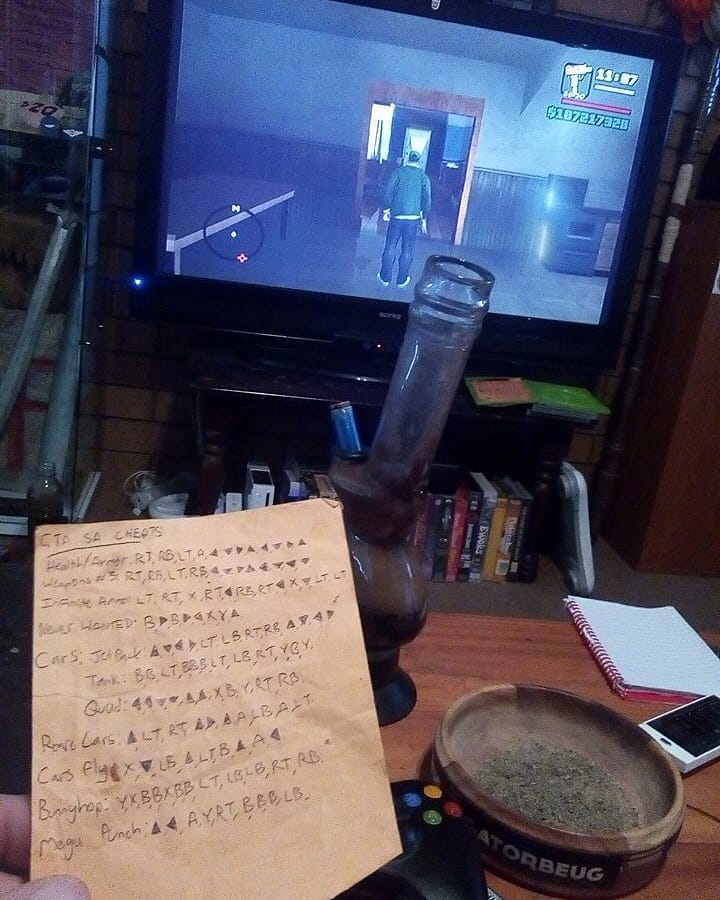 $20
11:57
$187217328
N
SONIQ
GTA SA CHEATS
Health/Armor: RT, RB, LT, A, ◄ ▼ ► ▲ ◄ ▼ ► ▲
Weapons #3: RT, RB, LT, RB, ◄ ▼ ► ▲ ◄ ▼ ▼ ▼
Infinite Ammo: LT, RT, X, RT ◄ RB, RT ◄ X ▼ LT, LT
Never WANTED: B ► B ► ◄ X Y ▲
Cars: Jetpack: ▲ ▼ ◄ ►, LT, LB, RT, RB, ▲ ▼ ◄ ►
Tank: BB, LT, BBB LT, LB, RT, Y, B, Y.
Quad: ◄ ◄ ▼ ▼, ▲ ▲, X, B, Y, RT, RB.
Rare Cars: ▲ LT, RT, ▲ ►, ▲, A, LB, A, LT.
Cars Fly: X, ▼, LB, ▲, LT, B, ▲, A, ◄
Bunnyhop: Y, X, B, B, X, B, B, LT, LB, LB, RT, RB.
Mega Punch: ▲ ◄, A, Y, RT, B B B, LB.
ATORBEUG